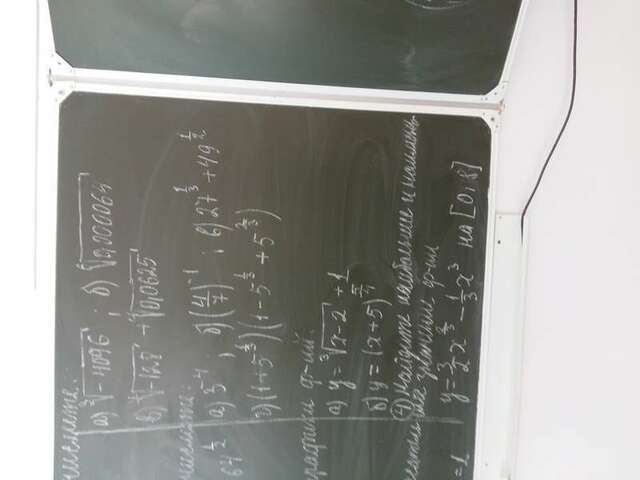 числите:
а) ∛-4096 ; б) √0,000064
в) ⁷√-128 + ⁴√0,0625
числите:
64^(1/2) а) 3^(-4) ; б) (4/7)^(-1) ; в) 27^(1/3) + 49^(1/2)
г) (1+5^(1/3))(1-5^(1/3)+5^(2/3))
графики ф-ий:
а) y = ∛x-2 + 1
б) y = (x+5)
④ Найдите наибольшее и наимень
шее значение ф-ии
=1 y = 3/2 x - 1/3 x³ на [0, 8]